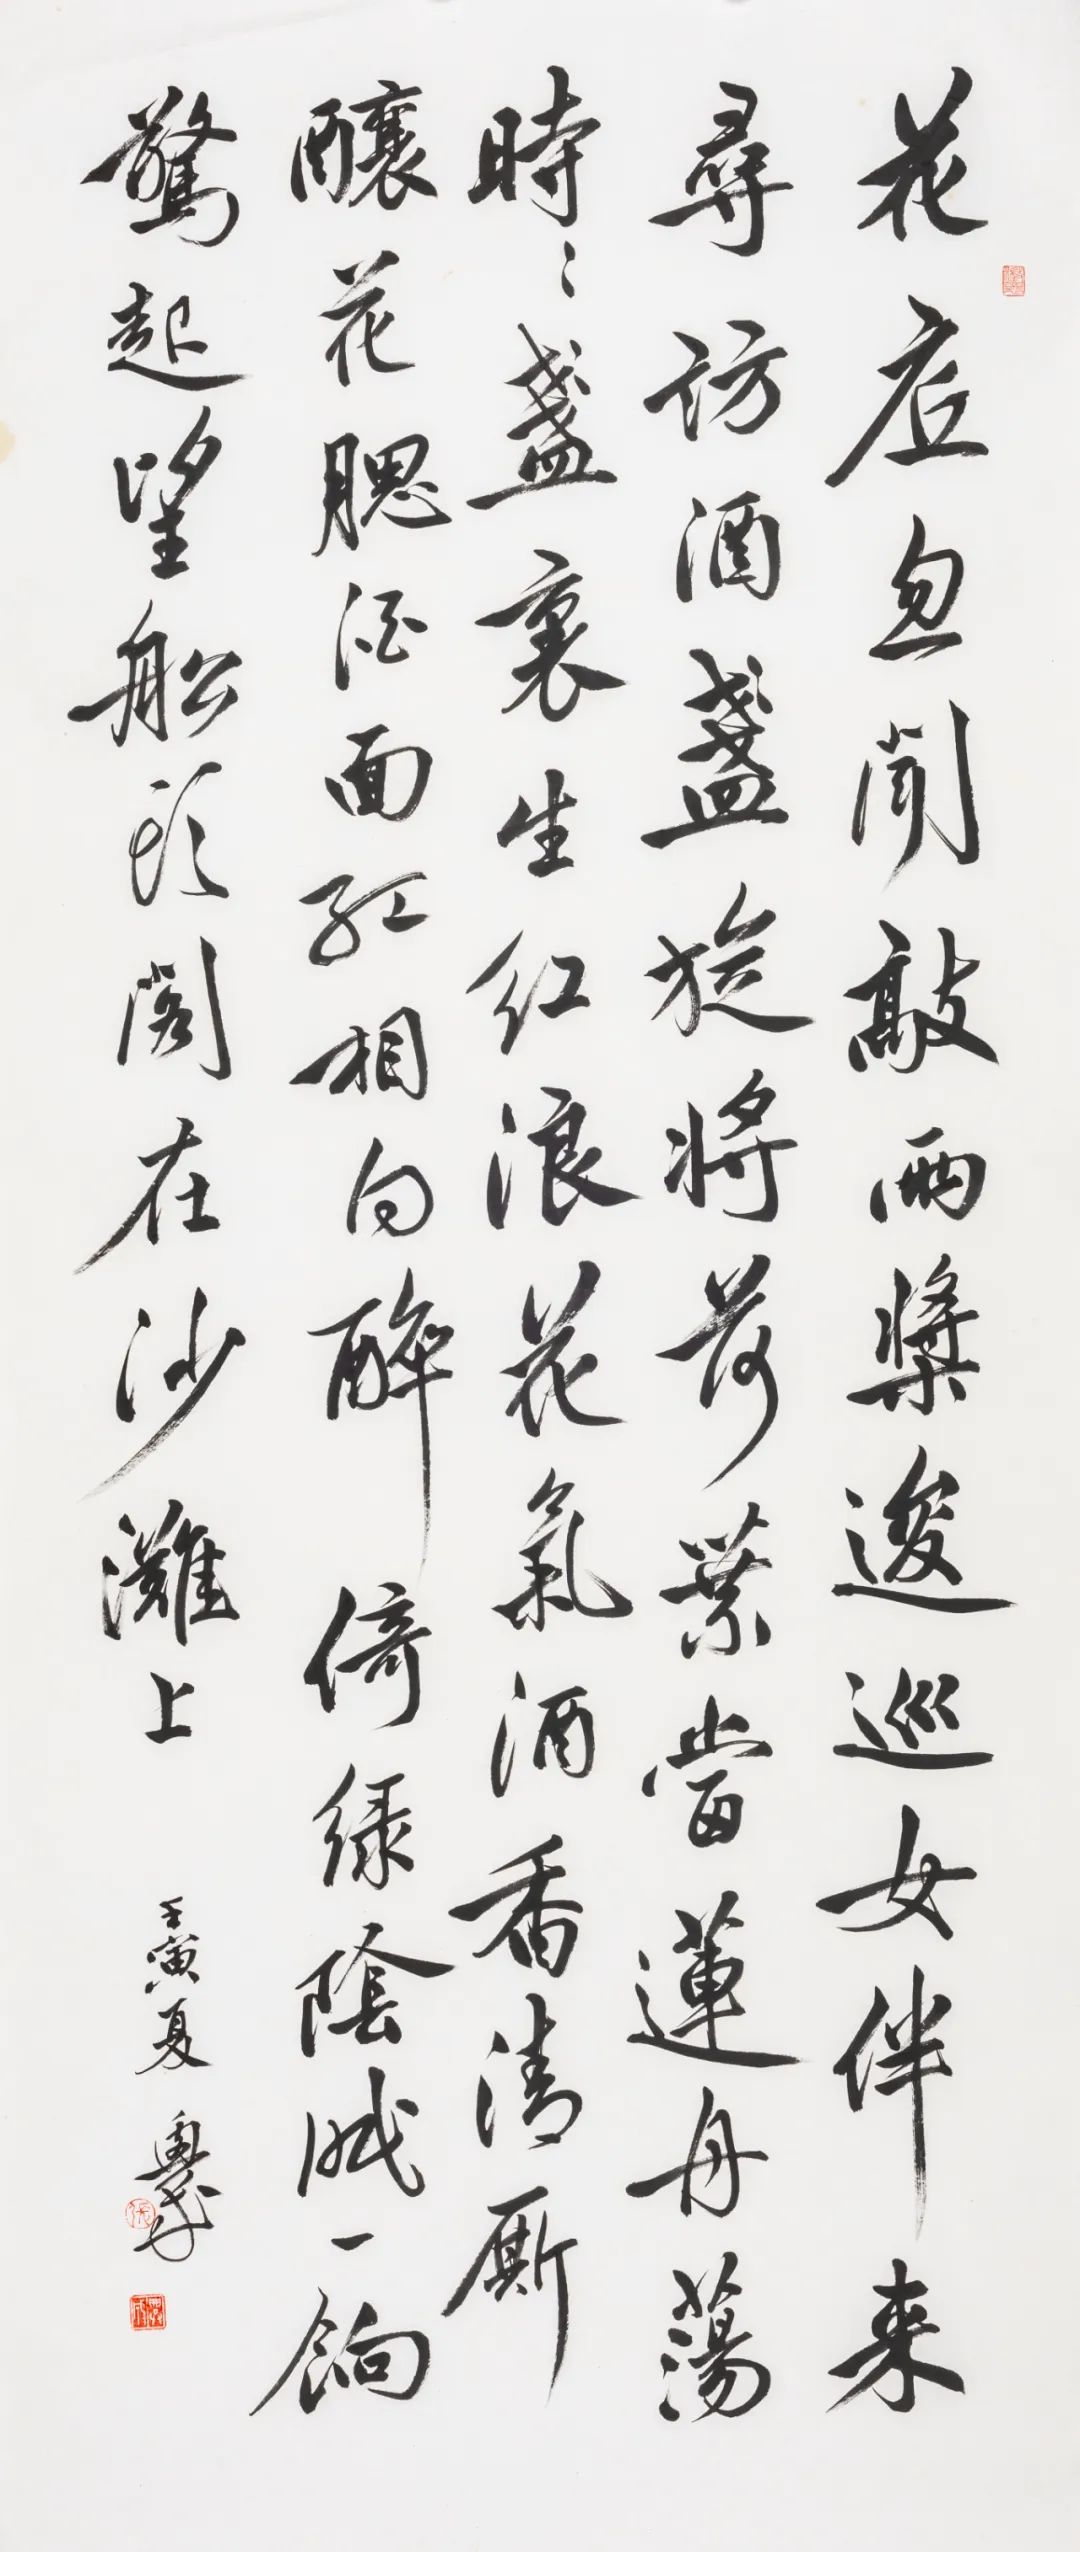 花底忽聞敲兩槳逡巡女伴来
尋訪酒盞旋將荷葉當蓮舟蕩
時〻盞裏生紅浪花氣酒香清厮
釀花腮酒面紅相向醉倚緑陰眠一餉
驚起望船頭閣在沙灘上
壬寅夏